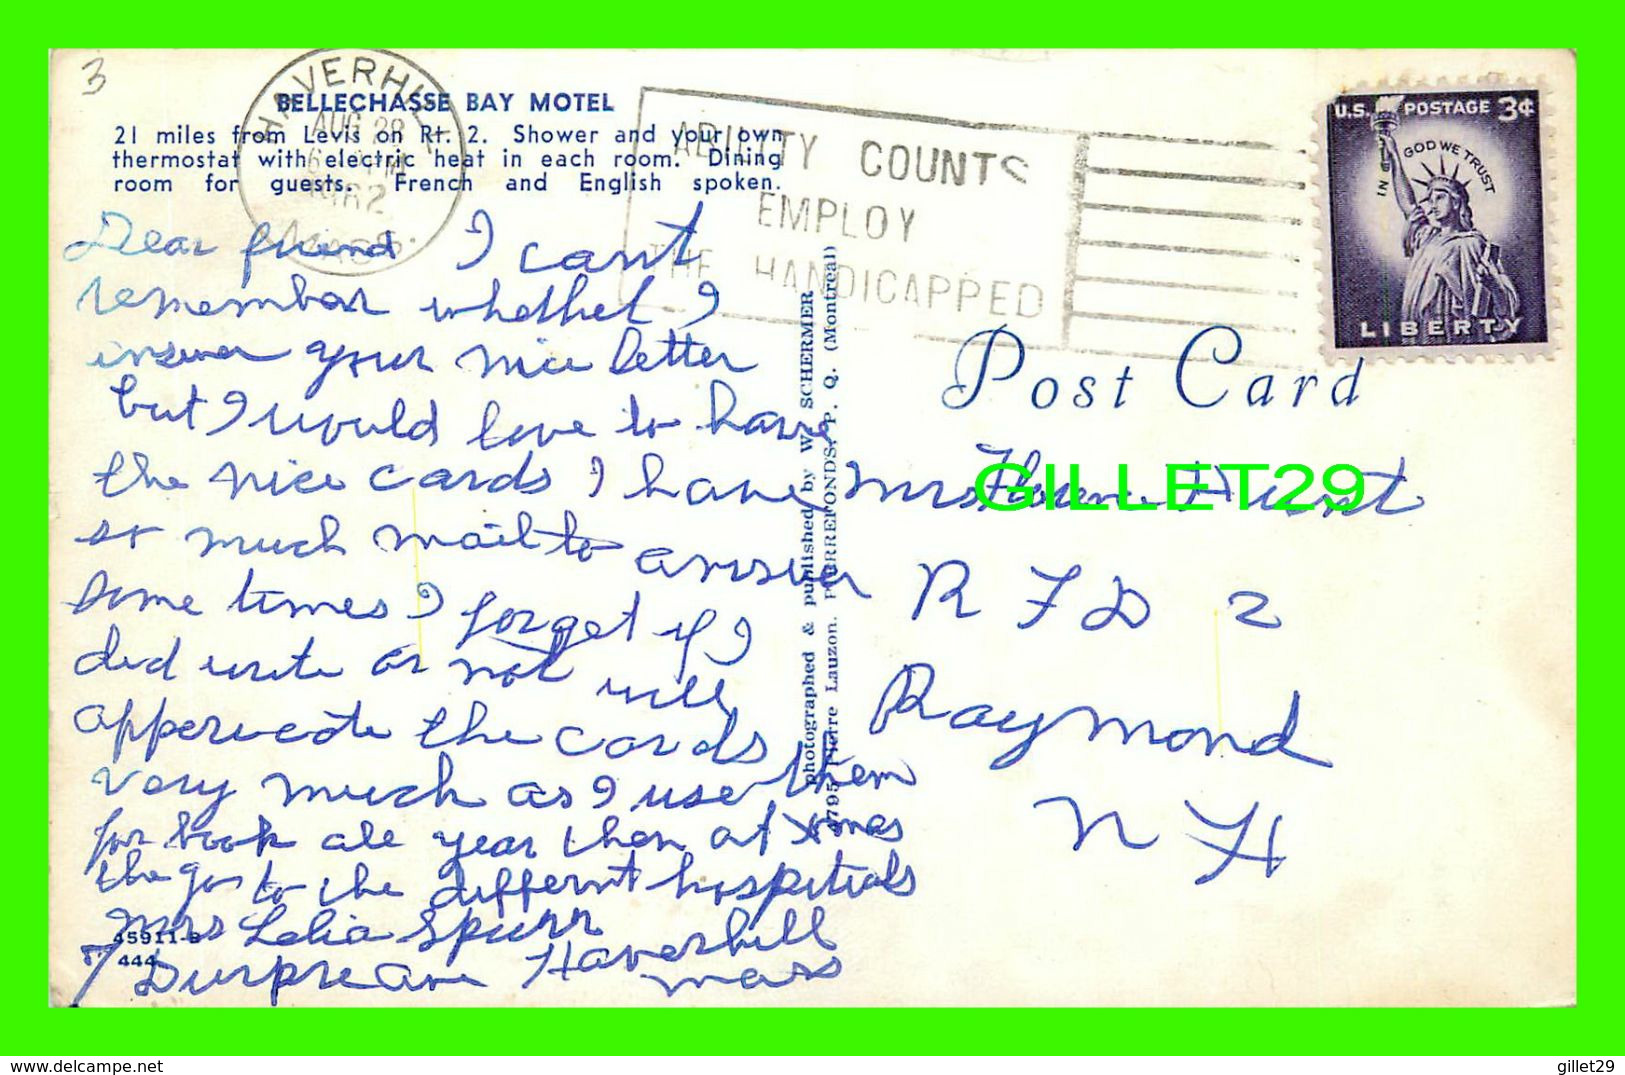 3
BELLECHASSE BAY MOTEL
21 miles from Levis on Rt. 2. Shower and your own
thermostat with electric heat in each room. Dining
room for guests. French and English spoken.
HAVERHILL
AUG 28
1962
MASS.
ABILITY COUNTS
EMPLOY
THE HANDICAPPED
U.S. POSTAGE 3¢
IN GOD WE TRUST
LIBERTY
Dear friend I cant
remember whether I
answer your nice letter
but I would love to have
the nice cards I have
so much mail to answer
some times I forget if I
did write or not will
appericate the cards
very much as I use them
for book all year then at Xmas
the go to the differnt hospitials
Mrs Lelia Spurr
7 Durpre Ave Haverhill
Mass
45911-B
444
photographed & published by W. SCHERMER
Pierre Lauzon. PIERREFONDS, P. Q. (Montreal)
Post Card
Mrs Florence Hurst
R F D 2
Raymond
N H
GILLET29
gillet29